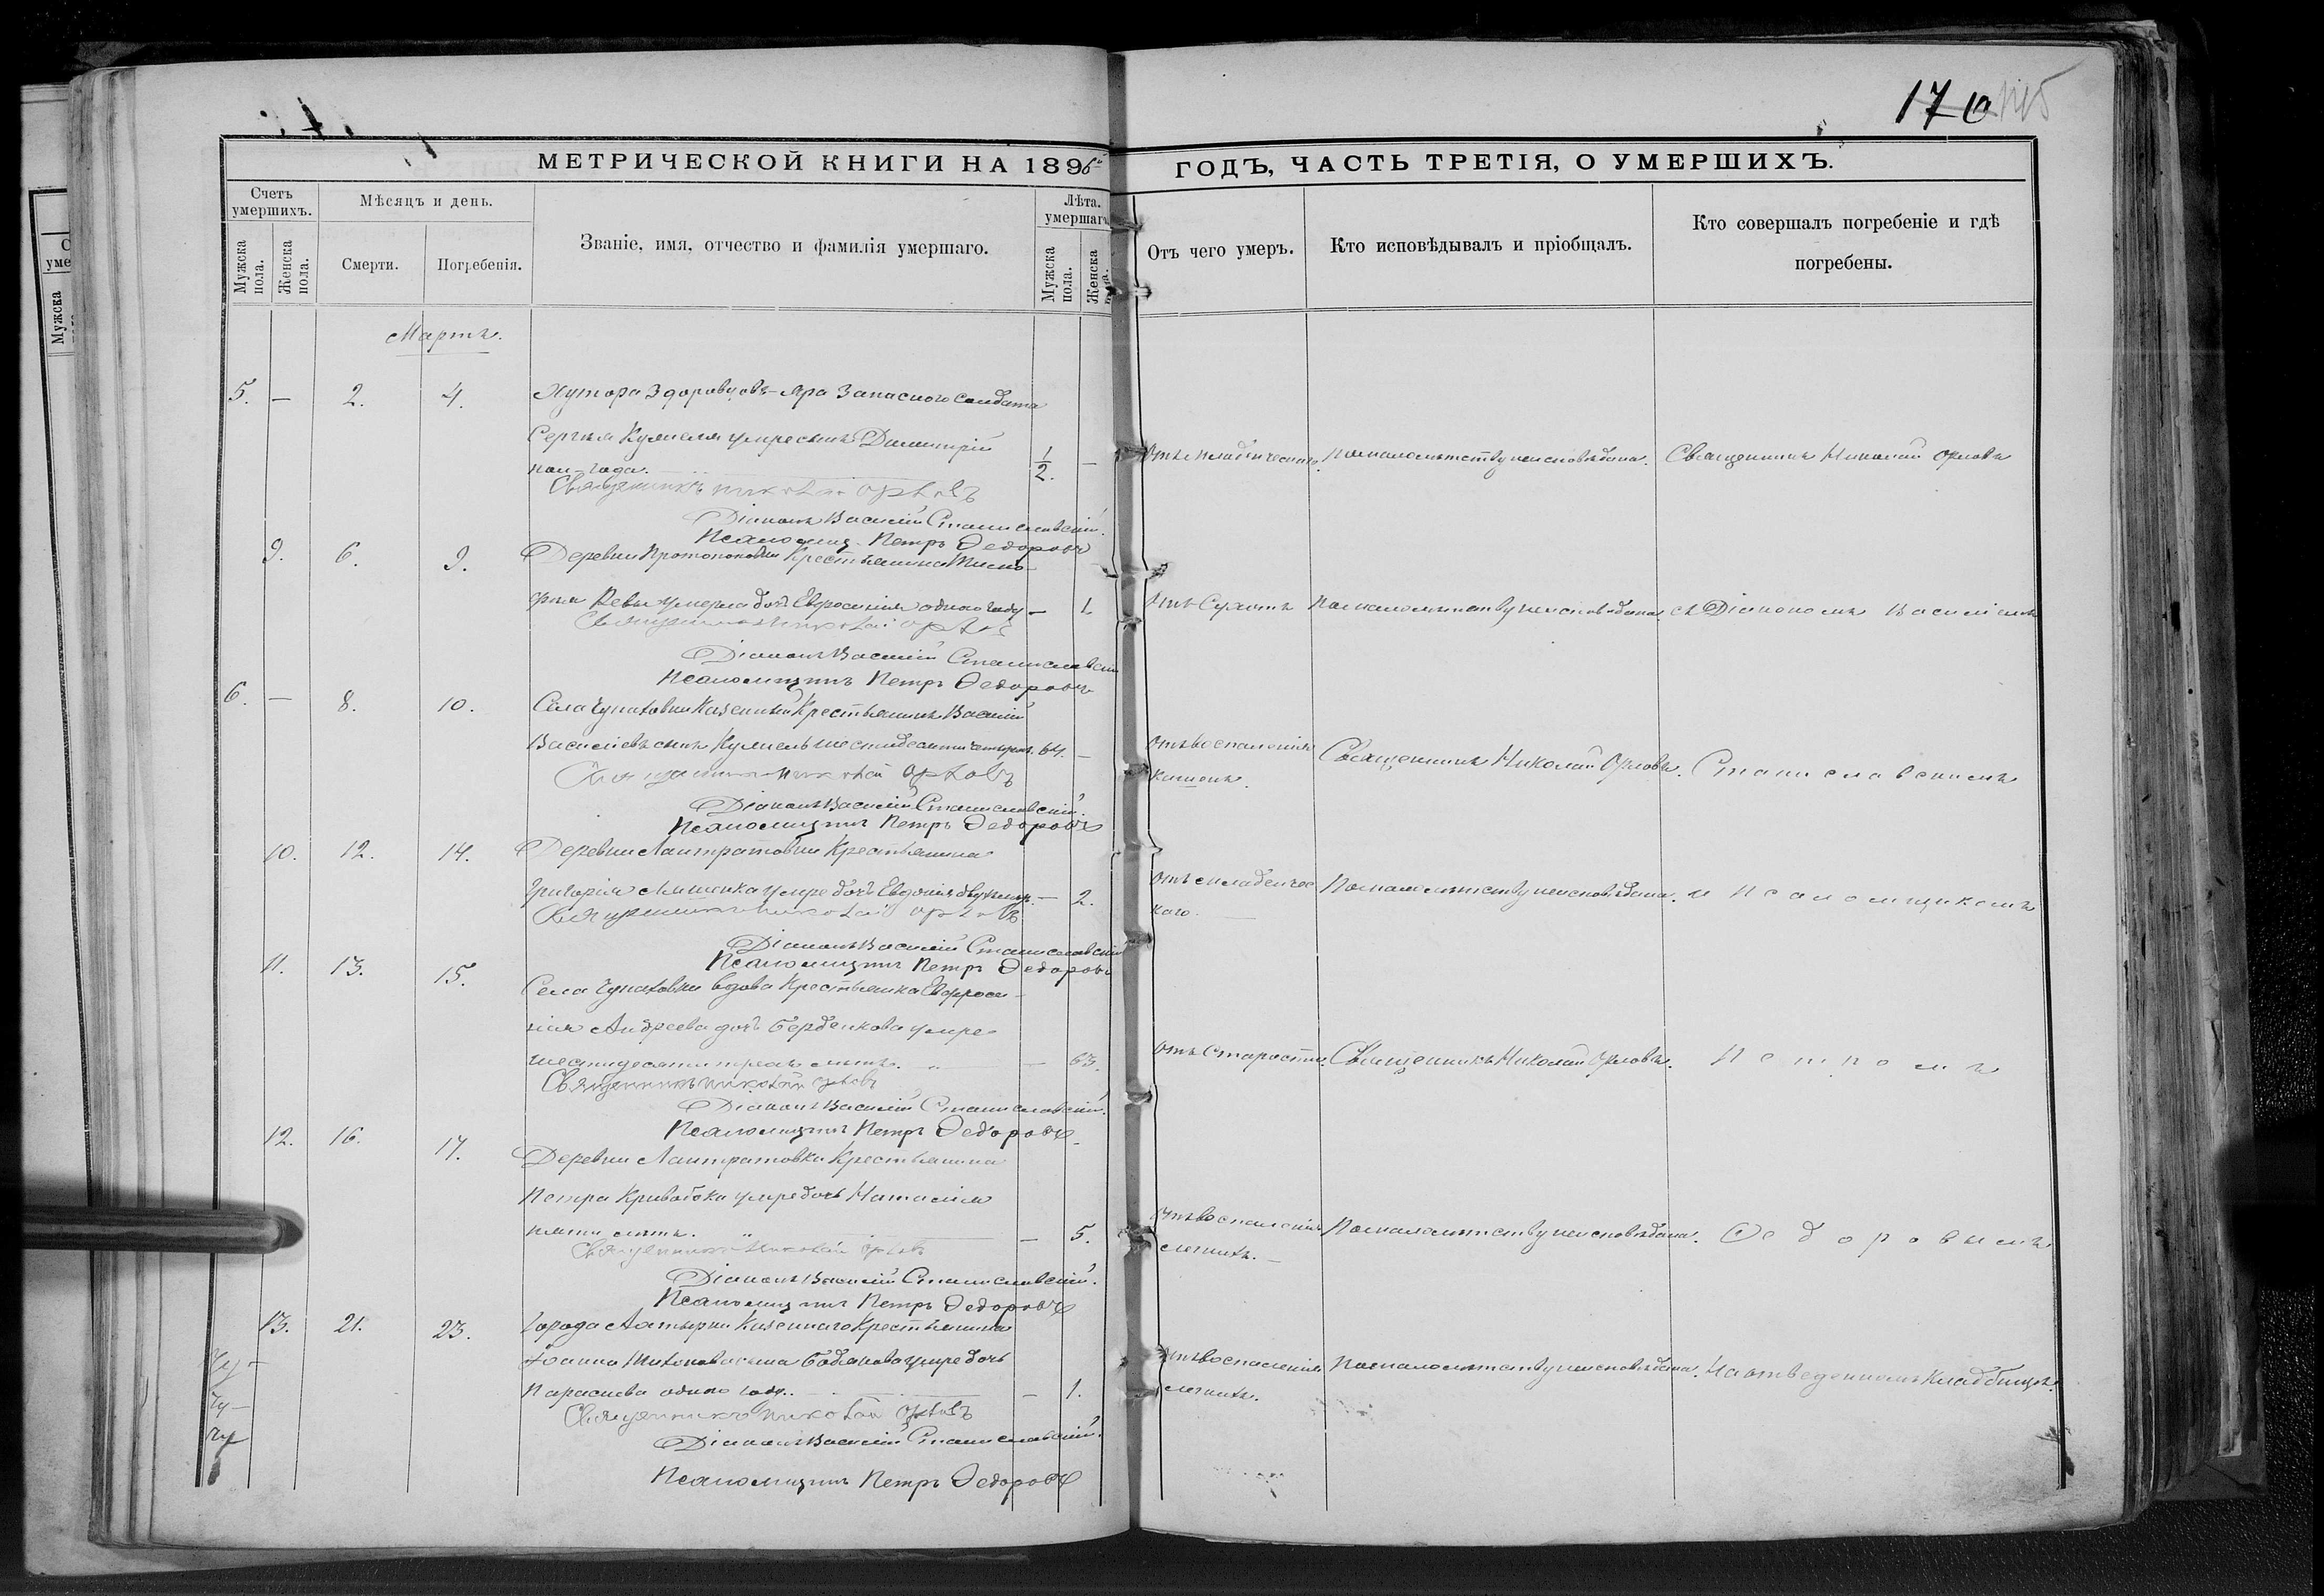 170
МЕТРИЧЕСКОЙ КНИГИ НА 1896 ГОДЪ, ЧАСТЬ ТРЕТІЯ, О УМЕРШИХЪ.
Счетъ умершихъ.
Мѣсяцъ и день.
Званіе, имя, отчество и фамилія умершаго.
Лѣта. умершаго
Отъ чего умеръ.
Кто исповѣдывалъ и пріобщалъ.
Кто совершалъ погребеніе и гдѣ погребены.
Мужска пола.
Женска пола.
Смерти.
Погребенія.
Мужска пола.
Женска пола.
Мартъ.
5. — 2. 4. Хутора Здоровцовъ-Яра Запасного Солдата
Сергѣя Кулиеля умре сынъ Димитрій
пол-года. 1/2. — Отъ младенческ. По малолѣтству неисповѣдана. Священникъ Николай Орловъ
Священникъ Николай Орловъ
Діаконъ Василій Станиславскій.
Псаломщ. Петръ Федоровъ
9. 6. 9. Деревни Протопоповки Крестьянина Тимо-
фея Ревы умерла дочь Евфросинія одного году — 1. Отъ Сухотъ По малолѣтству неисповѣдана. съ Діакономъ Василіемъ
Священникъ Николай Орловъ
Діаконъ Василій Станиславскій
Псаломщикъ Петръ Федоровъ
6. — 8. 10. Села Чупаховки Казенный Крестьянинъ Василій
Василіевъ сынъ Кулиель шестидесяти четырех. 64. — Отъ воспаленія
кишекъ. Священникъ Николай Орловъ. Станиславскимъ
Священникъ Николай Орловъ
Діаконъ Василій Станиславскій.
Псаломщикъ Петръ Федоровъ
10. 12. 14. Деревни Лантратовки Крестьянина
Григорія Ляшенка умре дочь Евдокія двухъ лѣт. — 2. Отъ младенчес
каго. По малолѣтству неисповѣдана. и Псаломщикомъ
Священникъ Николай Орловъ
Діаконъ Василій Станиславскій
Псаломщикъ Петръ Федоровъ
11. 13. 15. Села Чупаховки вдова Крестьянка Евфроси-
нія Андреева дочь Берденкова умре
шестидесяти трехъ лѣтъ. — 63. Отъ Старости. Священникъ Николай Орловъ. Петромъ
Священникъ Николай Орловъ
Діаконъ Василій Станиславскій.
Псаломщикъ Петръ Федоровъ.
12. 16. 17. Деревни Лантратовки Крестьянина
Петра Кривобока умре дочь Наталія
пяти лѣтъ. — 5. Отъ воспаленія
легкихъ. По малолѣтству неисповѣдана. Федоровымъ
Священникъ Николай Орловъ
Діаконъ Василій Станиславскій.
Псаломщикъ Петръ Федоровъ
13. 21. 23. Города Ахтырки Казеннаго Крестьянина
Іоанна Тихонова сына Боданова умре дочь
Параскева одного году. — 1. Отъ воспаленія
легкихъ. По малолѣтству неисповѣдана. На отведенномъ Кладбищѣ.
Священникъ Николай Орловъ
Діаконъ Василій Станиславскій.
Псаломщикъ Петръ Федоровъ